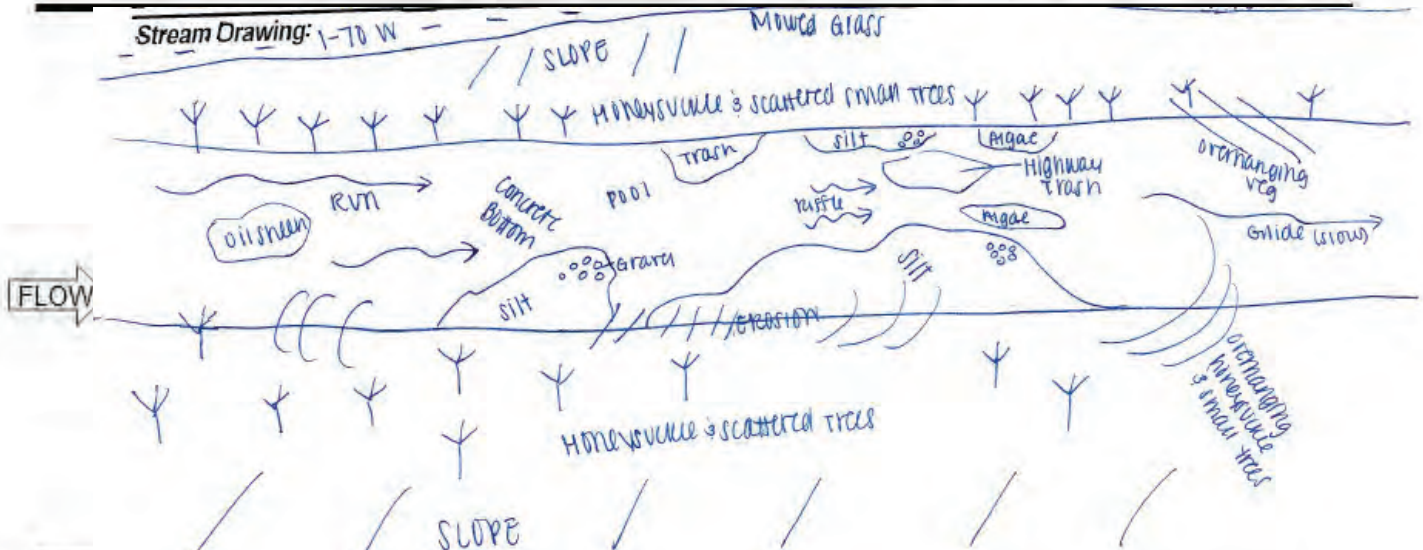 Stream Drawing: I-70 W
Mowed Grass
SLOPE
Honeysuckle & scattered small trees
Trash
Silt
Algae
Highway Trash
overhanging veg
Run
Concrete Bottom
Pool
riffle
Oil sheen
Algae
Glide (slow)
Gravel
Silt
Silt
FLOW
EROSION
overhanging honeysuckle & small trees
Honeysuckle & scattered trees
SLOPE